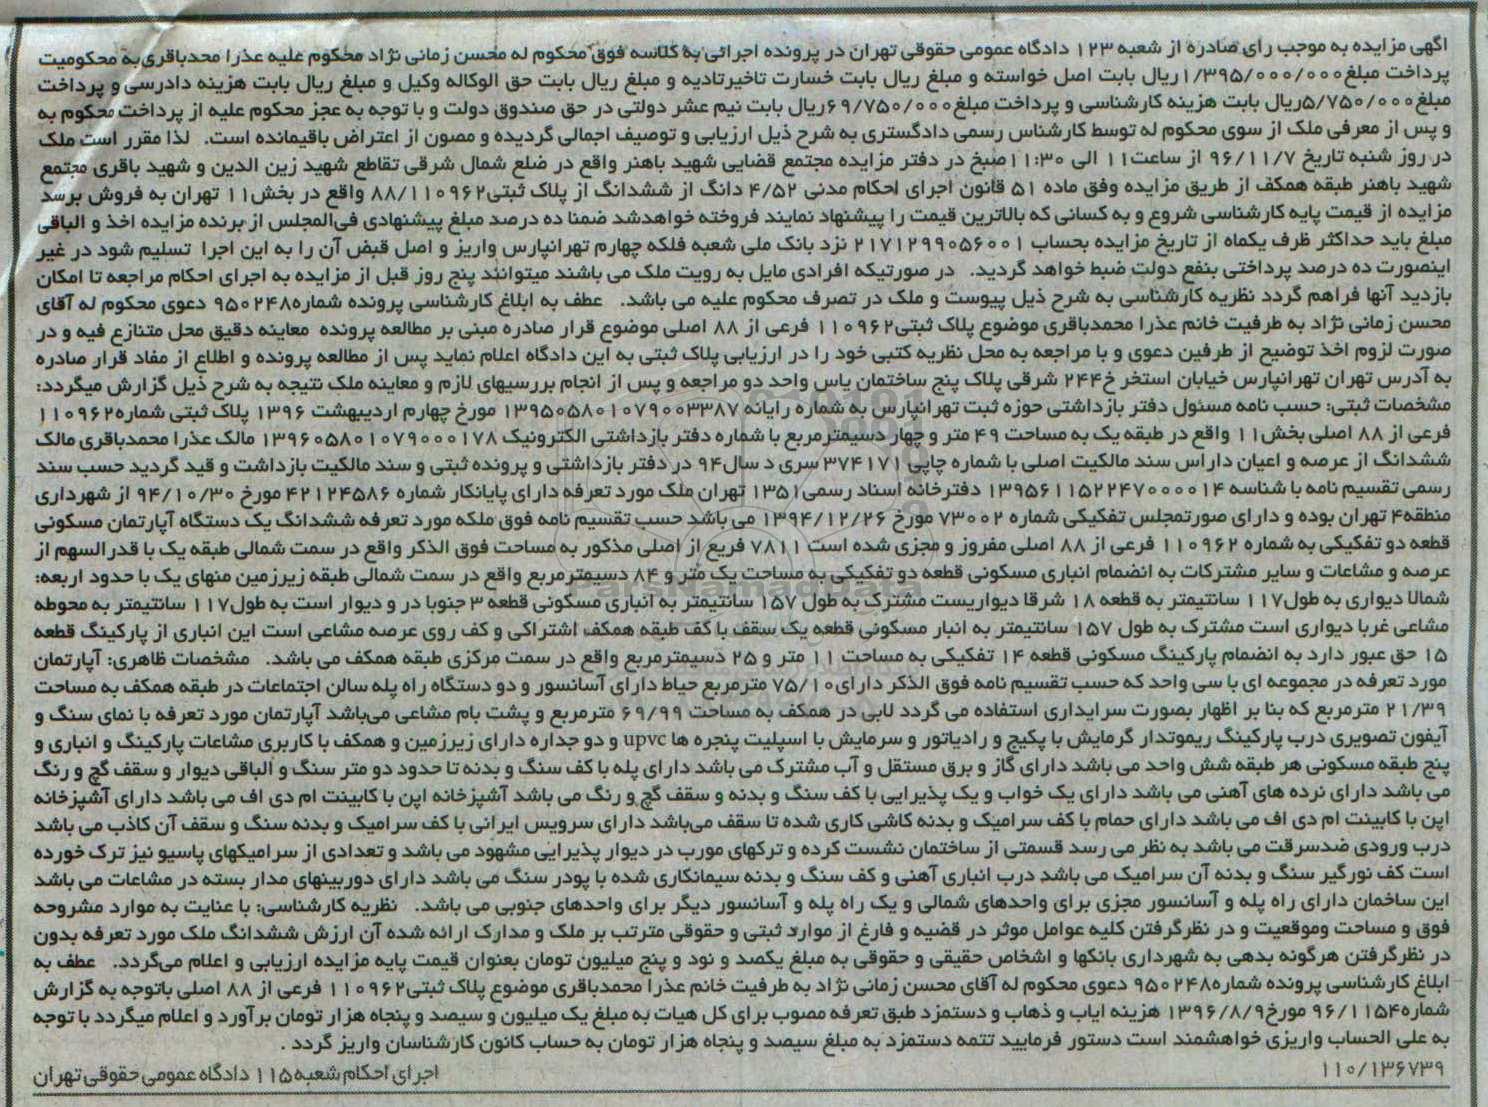 آگهی مزایده به موجب رای صادره از شعبه ۱۲۳ دادگاه عمومی حقوقی تهران در پرونده اجرائی به کلاسه فوق محکوم له محسن زمانی نژاد محکوم علیه عذرا محدباقری به محکومیت
پرداخت مبلغ ۱/۳۹۵/۰۰۰/۰۰۰ ریال بابت اصل خواسته و مبلغ ریال بابت خسارت تاخیرتادیه و مبلغ ریال بابت حق الوکاله وکیل و مبلغ ریال بابت هزینه دادرسی و پرداخت
مبلغ ۵/۷۵۰/۰۰۰ ریال بابت هزینه کارشناسی و پرداخت مبلغ ۶۹/۷۵۰/۰۰۰ ریال بابت نیم عشر دولتی در حق صندوق دولت و با توجه به عجز محکوم علیه از پرداخت محکوم به
و پس از معرفی ملک از سوی محکوم له توسط کارشناس رسمی دادگستری به شرح ذیل ارزیابی و توصیف اجمالی گردیده و مصون از اعتراض باقیمانده است. لذا مقرر است ملک
در روز شنبه تاریخ ۹۶/۱۱/۷ از ساعت ۱۱ الی ۱۱:۳۰ صبح در دفتر مزایده مجتمع قضایی شهید باهنر واقع در ضلع شمال شرقی تقاطع شهید زین الدین و شهید باقری مجتمع
شهید باهنر طبقه همکف از طریق مزایده وفق ماده ۵۱ قانون اجرای احکام مدنی ۴/۵۲ دانگ از ششدانگ از پلاک ثبتی ۸۸/۱۱۰۹۶۲ واقع در بخش ۱۱ تهران به فروش برسد
مزایده از قیمت پایه کارشناسی شروع و به کسانی که بالاترین قیمت را پیشنهاد نمایند فروخته خواهدشد ضمنا ده درصد مبلغ پیشنهادی فی‌المجلس از برنده مزایده اخذ و الباقی
مبلغ باید حداکثر ظرف یکماه از تاریخ مزایده بحساب ۲۱۷۱۲۹۹۰۵۶۰۰۱ نزد بانک ملی شعبه فلکه چهارم تهرانپارس واریز و اصل قبض آن را به این اجرا تسلیم شود در غیر
اینصورت ده درصد پرداختی بنفع دولت ضبط خواهد گردید. در صورتیکه افرادی مایل به رویت ملک می باشند میتوانند پنج روز قبل از مزایده به اجرای احکام مراجعه تا امکان
بازدید آنها فراهم گردد نظریه کارشناسی به شرح ذیل پیوست و ملک در تصرف محکوم علیه می باشد. عطف به ابلاغ کارشناسی پرونده شماره ۹۵۰۲۴۸ دعوی محکوم له آقای
محسن زمانی نژاد به طرفیت خانم عذرا محمدباقری موضوع پلاک ثبتی ۱۱۰۹۶۲ فرعی از ۸۸ اصلی موضوع قرار صادره مبنی بر مطالعه پرونده معاینه دقیق محل متنازع فیه و در
صورت لزوم اخذ توضیح از طرفین دعوی و با مراجعه به محل نظریه کتبی خود را در ارزیابی پلاک ثبتی به این دادگاه اعلام نماید پس از مطالعه پرونده و اطلاع از مفاد قرار صادره
به آدرس تهران تهرانپارس خیابان استخر خ ۲۴۴ شرقی پلاک پنج ساختمان یاس واحد دو مراجعه و پس از انجام بررسیهای لازم و معاینه ملک نتیجه به شرح ذیل گزارش میگردد:
مشخصات ثبتی: حسب نامه مسئول دفتر بازداشتی حوزه ثبت تهرانپارس به شماره رایانه ۱۳۹۵۰۵۸۰۱۰۷۹۰۰۳۳۸۷ مورخ چهارم اردیبهشت ۱۳۹۶ پلاک ثبتی شماره ۱۱۰۹۶۲
فرعی از ۸۸ اصلی بخش ۱۱ واقع در طبقه یک به مساحت ۴۹ متر و چهار دسیمترمربع با شماره دفتر بازداشتی الکترونیک ۱۳۹۶۰۵۸۰۱۰۷۹۰۰۰۱۷۸ مالک عذرا محمدباقری مالک
ششدانگ از عرصه و اعیان داراس سند مالکیت اصلی با شماره چاپی ۳۷۴۱۷۱ سری د سال ۹۴ در دفتر بازداشتی و پرونده ثبتی و سند مالکیت بازداشت و قید گردید حسب سند
رسمی تقسیم نامه با شناسه ۱۳۹۵۶۱۱۵۲۲۴۷۰۰۰۰۱۴ دفترخانه اسناد رسمی ۱۳۵۱ تهران ملک مورد تعرفه دارای پایانکار شماره ۴۲۱۲۴۵۸۶ مورخ ۹۴/۱۰/۳۰ از شهرداری
منطقه ۴ تهران بوده و دارای صورتمجلس تفکیکی شماره ۷۳۰۰۲ مورخ ۱۳۹۴/۱۲/۲۶ می باشد حسب تقسیم نامه فوق ملکه مورد تعرفه ششدانگ یک دستگاه آپارتمان مسکونی
قطعه دو تفکیکی به شماره ۱۱۰۹۶۲ فرعی از ۸۸ اصلی مفروز و مجزی شده است ۷۸۱۱ فریع از اصلی مذکور به مساحت فوق الذکر واقع در سمت شمالی طبقه یک با قدرالسهم از
عرصه و مشاعات و سایر مشترکات به انضمام انباری مسکونی قطعه دو تفکیکی به مساحت یک متر و ۸۴ دسیمترمربع واقع در سمت شمالی طبقه زیرزمین منهای یک با حدود اربعه:
شمالا دیواری به طول ۱۱۷ سانتیمتر به قطعه ۱۸ شرقا دیواریست مشترک به طول ۱۵۷ سانتیمتر به انباری مسکونی قطعه ۳ جنوبا در و دیوار است به طول ۱۱۷ سانتیمتر به محوطه
مشاعی غربا دیواری است مشترک به طول ۱۵۷ سانتیمتر به انبار مسکونی قطعه یک سقف با کف طبقه همکف اشتراکی و کف روی عرصه مشاعی است این انباری از پارکینگ قطعه
۱۵ حق عبور دارد به انضمام پارکینگ مسکونی قطعه ۱۴ تفکیکی به مساحت ۱۱ متر و ۲۵ دسیمترمربع واقع در سمت مرکزی طبقه همکف می باشد. مشخصات ظاهری: آپارتمان
مورد تعرفه در مجموعه ای با سی واحد که حسب تقسیم نامه فوق الذکر دارای ۷۵/۱۰ مترمربع حیاط دارای آسانسور و دو دستگاه راه پله سالن اجتماعات در طبقه همکف به مساحت
۲۱/۳۹ مترمربع که بنا بر اظهار بصورت سرایداری استفاده می گردد لابی در همکف به مساحت ۶۹/۹۹ مترمربع و پشت بام مشاعی می‌باشد آپارتمان مورد تعرفه با نمای سنگ و
آیفون تصویری درب پارکینگ ریموتدار گرمایش با پکیج و رادیاتور و سرمایش با اسپلیت پنجره ها upvc و دو جداره دارای زیرزمین و همکف با کاربری مشاعات پارکینگ و انباری و
پنج طبقه مسکونی هر طبقه شش واحد می باشد دارای گاز و برق مستقل و آب مشترک می باشد دارای پله با کف سنگ و بدنه تا حدود دو متر سنگ و الباقی دیوار و سقف گچ و رنگ
می باشد دارای نرده های آهنی می باشد دارای یک خواب و یک پذیرایی با کف سنگ و بدنه و سقف گچ و رنگ می باشد آشپزخانه اپن با کابینت ام دی اف می باشد دارای آشپزخانه
اپن با کابینت ام دی اف می باشد دارای حمام با کف سرامیک و بدنه کاشی کاری شده تا سقف می‌باشد دارای سرویس ایرانی با کف سرامیک و بدنه سنگ و سقف آن کاذب می باشد
درب ورودی ضدسرقت می باشد به نظر می رسد قسمتی از ساختمان نشست کرده و ترکهای مورب در دیوار پذیرایی مشهود می باشد و تعدادی از سرامیکهای پاسیو نیز ترک خورده
است کف نورگیر سنگ و بدنه آن سرامیک می باشد درب انباری آهنی و کف سنگ و بدنه سیمانکاری شده با پودر سنگ می باشد دارای دوربینهای مدار بسته در مشاعات می باشد
این ساخمان دارای راه پله و آسانسور مجزی برای واحدهای شمالی و یک راه پله و آسانسور دیگر برای واحدهای جنوبی می باشد. نظریه کارشناسی: با عنایت به موارد مشروحه
فوق و مساحت وموقعیت و در نظرگرفتن کلیه عوامل موثر در قضیه و فارغ از موارد ثبتی و حقوقی مترتب بر ملک و مدارک ارائه شده آن ارزش ششدانگ ملک مورد تعرفه بدون
در نظرگرفتن هرگونه بدهی به شهرداری بانکها و اشخاص حقیقی و حقوقی به مبلغ یکصد و نود و پنج میلیون تومان بعنوان قیمت پایه مزایده ارزیابی و اعلام می‌گردد. عطف به
ابلاغ کارشناسی پرونده شماره ۹۵۰۲۴۸ دعوی محکوم له آقای محسن زمانی نژاد به طرفیت خانم عذرا محمدباقری موضوع پلاک ثبتی ۱۱۰۹۶۲ فرعی از ۸۸ اصلی باتوجه به گزارش
شماره ۹۶/۱۱۵۴ مورخ ۱۳۹۶/۸/۹ هزینه ایاب و ذهاب و دستمزد طبق تعرفه مصوب برای کل هیات به مبلغ یک میلیون و سیصد و پنجاه هزار تومان برآورد و اعلام میگردد با توجه
به علی الحساب واریزی خواهشمند است دستور فرمایید تتمه دستمزد به مبلغ سیصد و پنجاه هزار تومان به حساب کانون کارشناسان واریز گردد.
۱۱۰/۱۳۶۷۳۹ اجرای احکام شعبه ۱۱۵ دادگاه عمومی حقوقی تهران